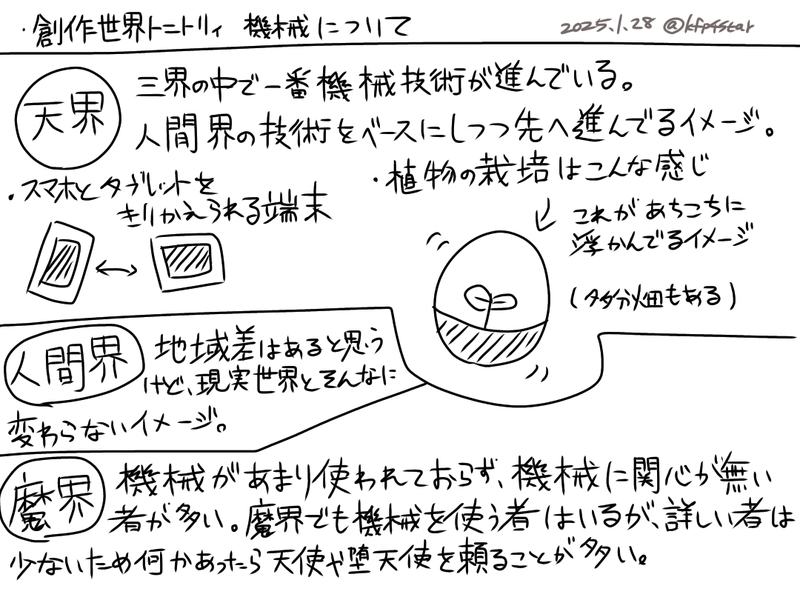 ・創作世界トニトリィ 機械について
2025.1.28 @kfp4star
天界
三界の中で一番機械技術が進んでいる。
人間界の技術をベースにしつつ先へ進んでるイメージ。
・スマホとタブレットを
きりかえられる端末
・植物の栽培はこんな感じ
これがあちこちに
浮かんでるイメージ
(多分畑もある)
人間界
地域差はあると思う
けど、現実世界とそんなに
変わらないイメージ。
魔界
機械があまり使われておらず、機械に関心が無い
者が多い。魔界でも機械を使う者はいるが、詳しい者は
少ないため何かあったら天使や堕天使を頼ることが多い。